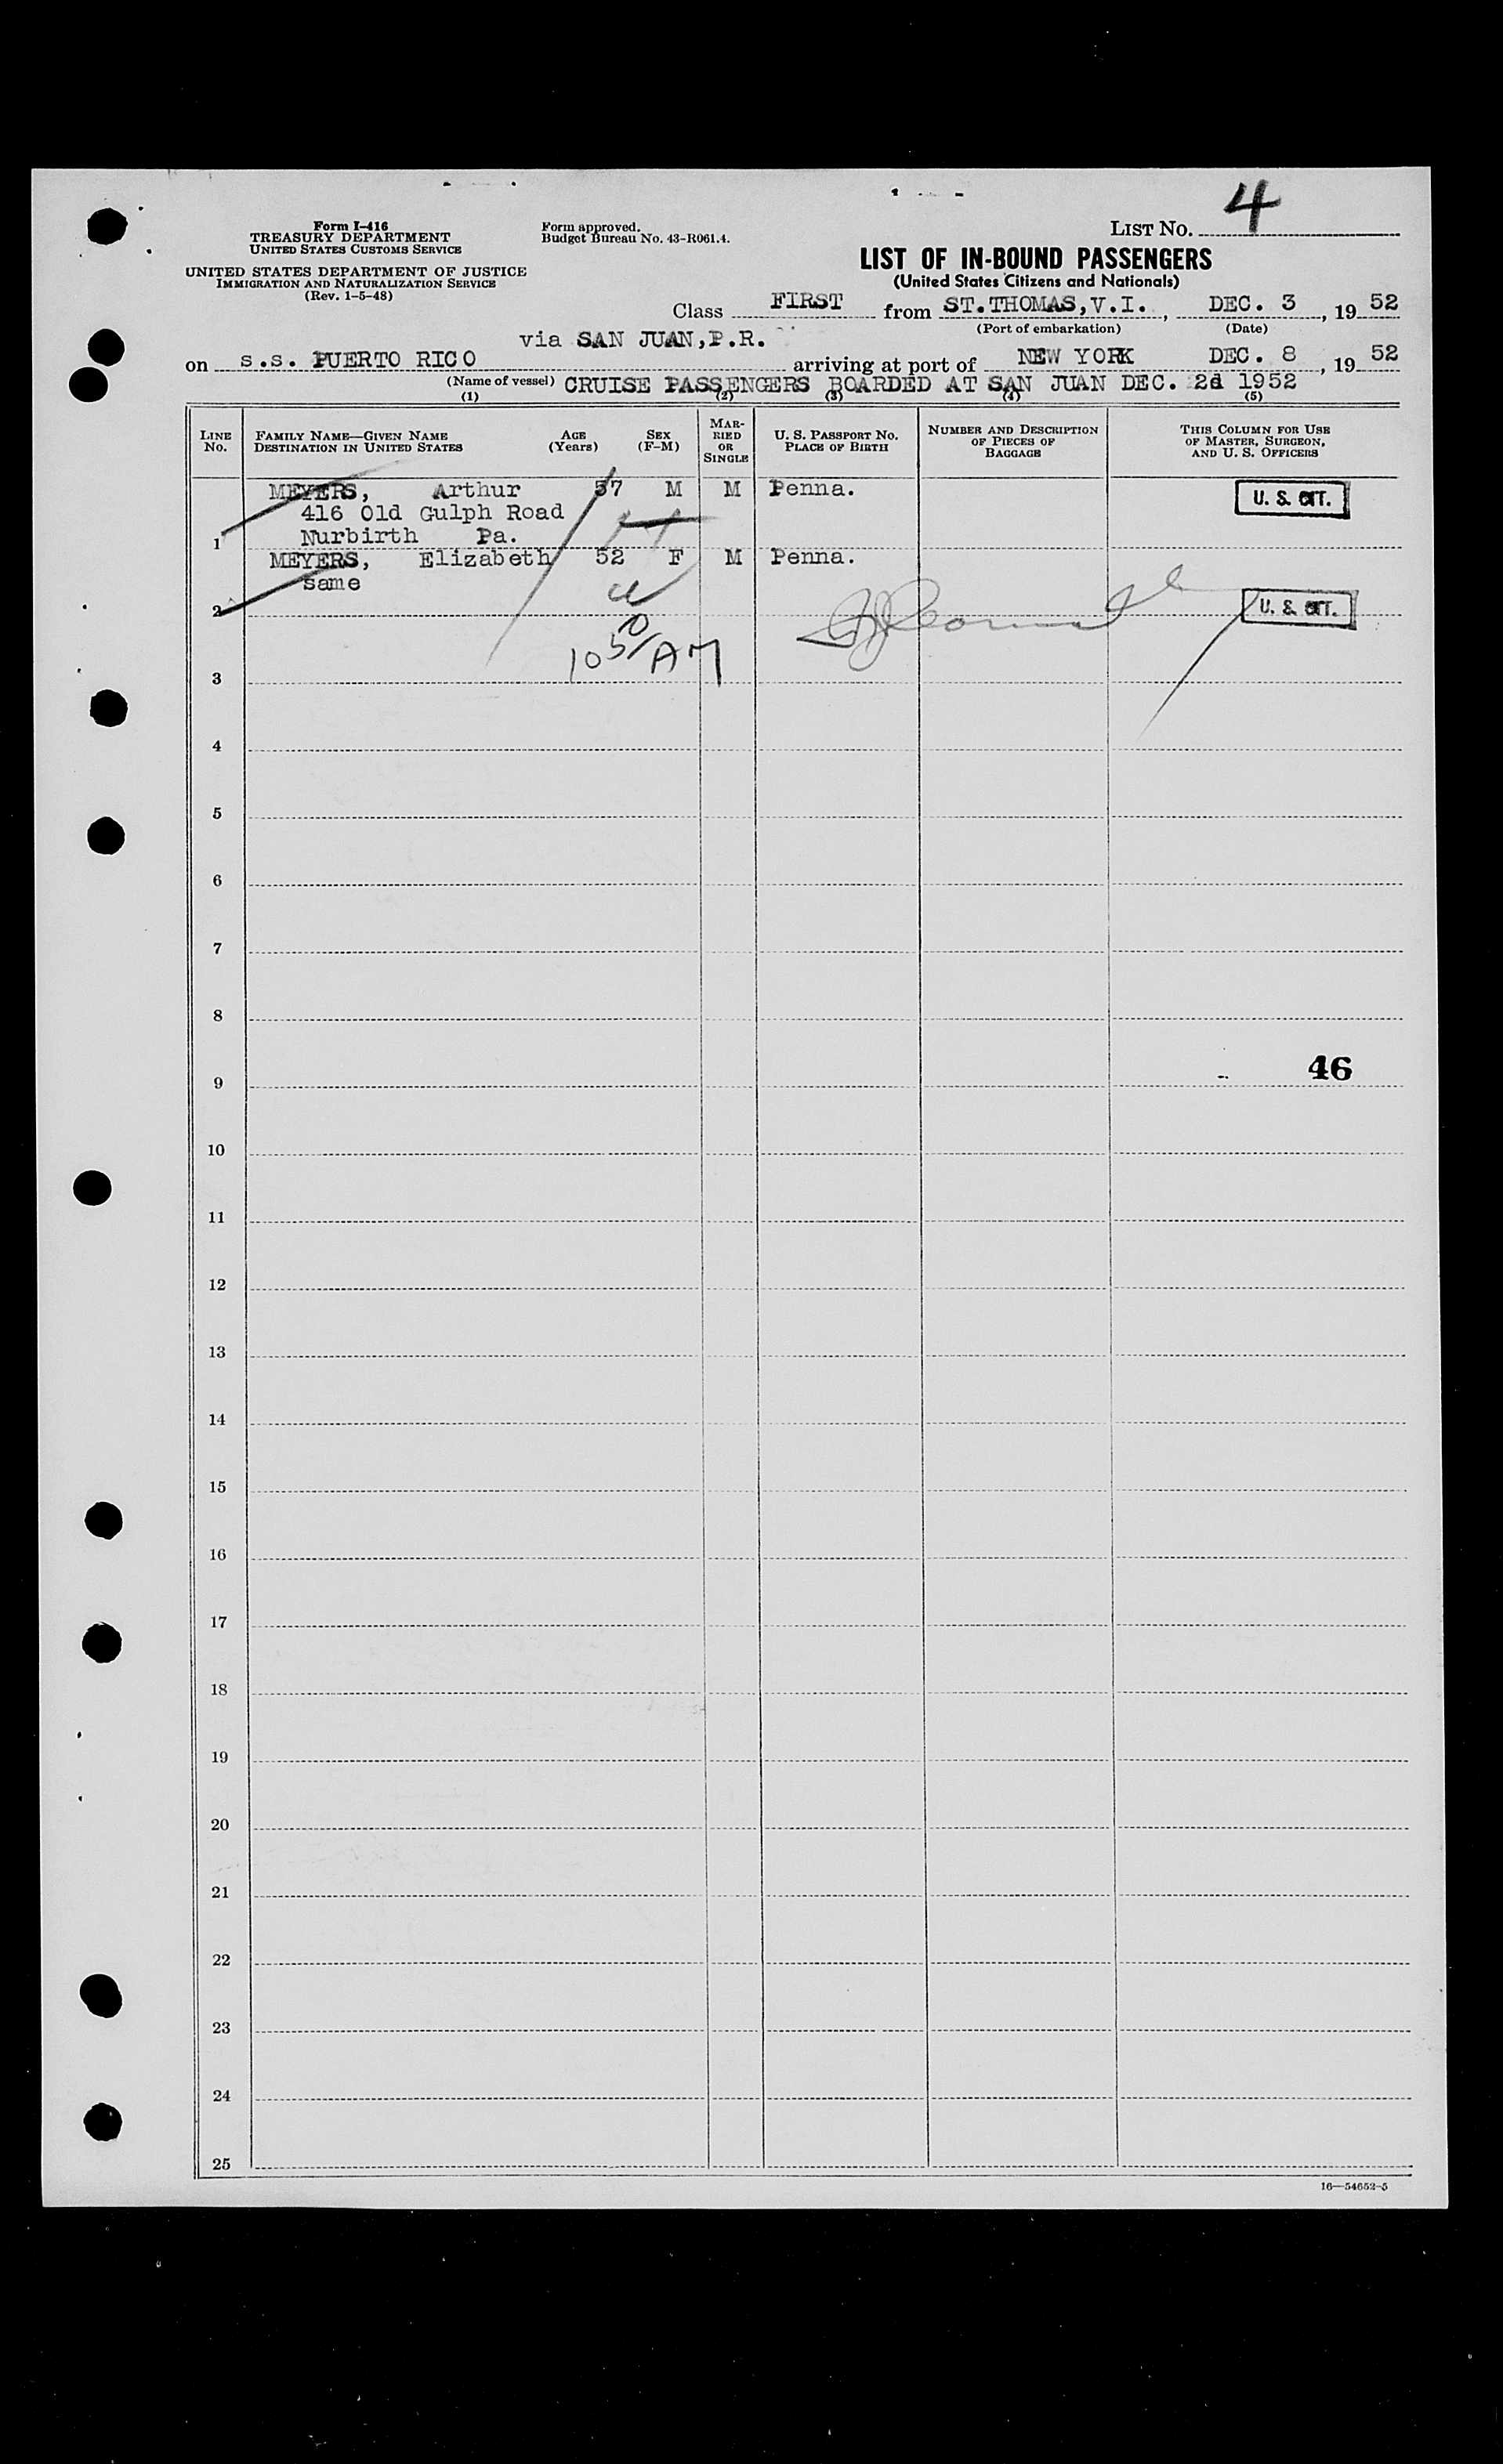 LIST NO. 4
Form I-416
TREASURY DEPARTMENT
UNITED STATES CUSTOMS SERVICE
UNITED STATES DEPARTMENT OF JUSTICE
IMMIGRATION AND NATURALIZATION SERVICE
(Rev. 1-5-48)
Form approved.
Budget Bureau No. 43-R061.4.
LIST OF IN-BOUND PASSENGERS
(United States Citizens and Nationals)
Class FIRST from ST.THOMAS,V.I., DEC. 3, 1952
(Port of embarkation) (Date)
via SAN JUAN,P.R.
on S.S. PUERTO RICO arriving at port of NEW YORK DEC. 8, 1952
(Name of vessel) CRUISE PASSENGERS BOARDED AT SAN JUAN DEC. 2d 1952
(1) (2) (3) (4) (5)
LINE NO. FAMILY NAME—GIVEN NAME DESTINATION IN UNITED STATES AGE (Years) SEX (F-M) MARRIED OR SINGLE U. S. PASSPORT NO. PLACE OF BIRTH NUMBER AND DESCRIPTION OF PIECES OF BAGGAGE THIS COLUMN FOR USE OF MASTER, SURGEON, AND U. S. OFFICERS
MEYERS, Arthur 57 M M Penna. U. S. CIT.
416 Old Gulph Road
1 Nurbirth Pa.
MEYERS, Elizabeth 52 F M Penna.
same
2 U. S. CIT.
10 50/AM
3
4
5
6
7
8
46
9
10
11
12
13
14
15
16
17
18
19
20
21
22
23
24
25
16—54652-5